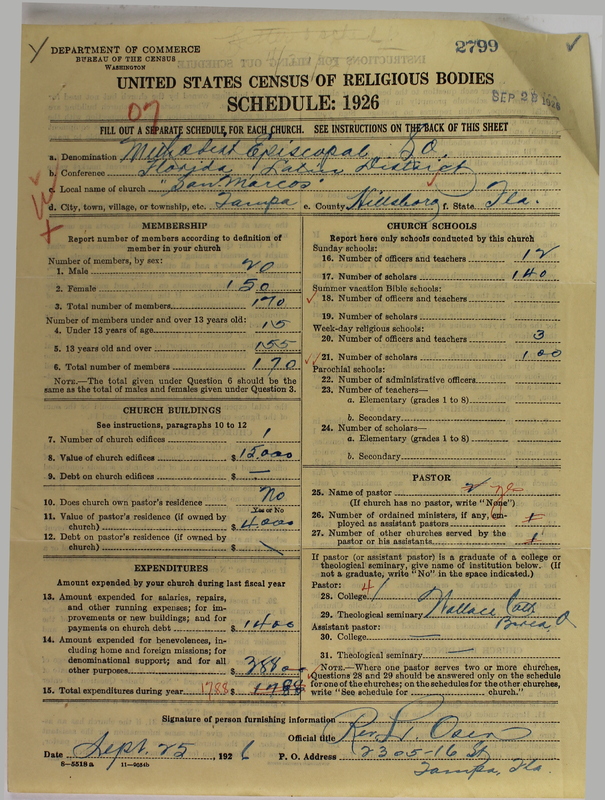 2799
DEPARTMENT OF COMMERCE
BUREAU OF THE CENSUS
WASHINGTON
UNITED STATES CENSUS OF RELIGIOUS BODIES
SCHEDULE: 1926
SEP 28 1926
07
FILL OUT A SEPARATE SCHEDULE FOR EACH CHURCH. SEE INSTRUCTIONS ON THE BACK OF THIS SHEET
a. Denomination Methodist Episcopal So.
b. Conference Florida, Latin District
c. Local name of church "San Marcos"
d. City, town, village, or township, etc. Tampa e. County Hillsboro f. State Fla.
MEMBERSHIP
Report number of members according to definition of
member in your church
Number of members, by sex:
1. Male 20
2. Female 150
3. Total number of members 170
Number of members under and over 13 years old:
4. Under 13 years of age 15
5. 13 years old and over 155
6. Total number of members 170
NOTE.—The total given under Question 6 should be
same as the total of males and females given under Question 3.
CHURCH BUILDINGS
See instructions, paragraphs 10 to 12
7. Number of church edifices 1
8. Value of church edifices $15,000
9. Debt on church edifices $ —
10. Does church own pastor's residence No
Yes or No
11. Value of pastor's residence (if owned by
church) $4000
12. Debt on pastor's residence (if owned by
church) $
EXPENDITURES
Amount expended by your church during last fiscal year
13. Amount expended for salaries, repairs,
and other running expenses; for im-
provements or new buildings; and for
payments on church debt $1400
14. Amount expended for benevolences, in-
cluding home and foreign missions; for
denominational support; and for all
other purposes $388 00
15. Total expenditures during year 1788 $1788
CHURCH SCHOOLS
Report here only schools conducted by this church
Sunday schools:
16. Number of officers and teachers 12
17. Number of scholars 140
Summer vacation Bible schools:
18. Number of officers and teachers
19. Number of scholars
Week-day religious schools:
20. Number of officers and teachers 3
21. Number of scholars 100
Parochial schools:
22. Number of administrative officers
23. Number of teachers—
a. Elementary (grades 1 to 8)
b. Secondary
24. Number of scholars—
a. Elementary (grades 1 to 8)
b. Secondary
PASTOR
25. Name of pastor
(If church has no pastor, write "None")
26. Number of ordained ministers, if any, em-
ployed as assistant pastors
27. Number of other churches served by the
pastor or his assistants
If pastor (or assistant pastor) is a graduate of a college or
theological seminary, give name of institution below. (If
not a graduate, write "No" in the space indicated.)
Pastor:
28. College
29. Theological seminary Wallace
Berea, O
Assistant pastor:
30. College —
31. Theological seminary —
NOTE.—Where one pastor serves two or more churches,
Questions 28 and 29 should be answered only on the schedule
for one of the churches; on the schedules for the other churches,
write "See schedule for church."
Signature of person furnishing information
Official title Rev.
Date Sept. 25, 1926 P. O. Address 2305-16 St
Tampa, Fla.
8—5518 a 11—9054b